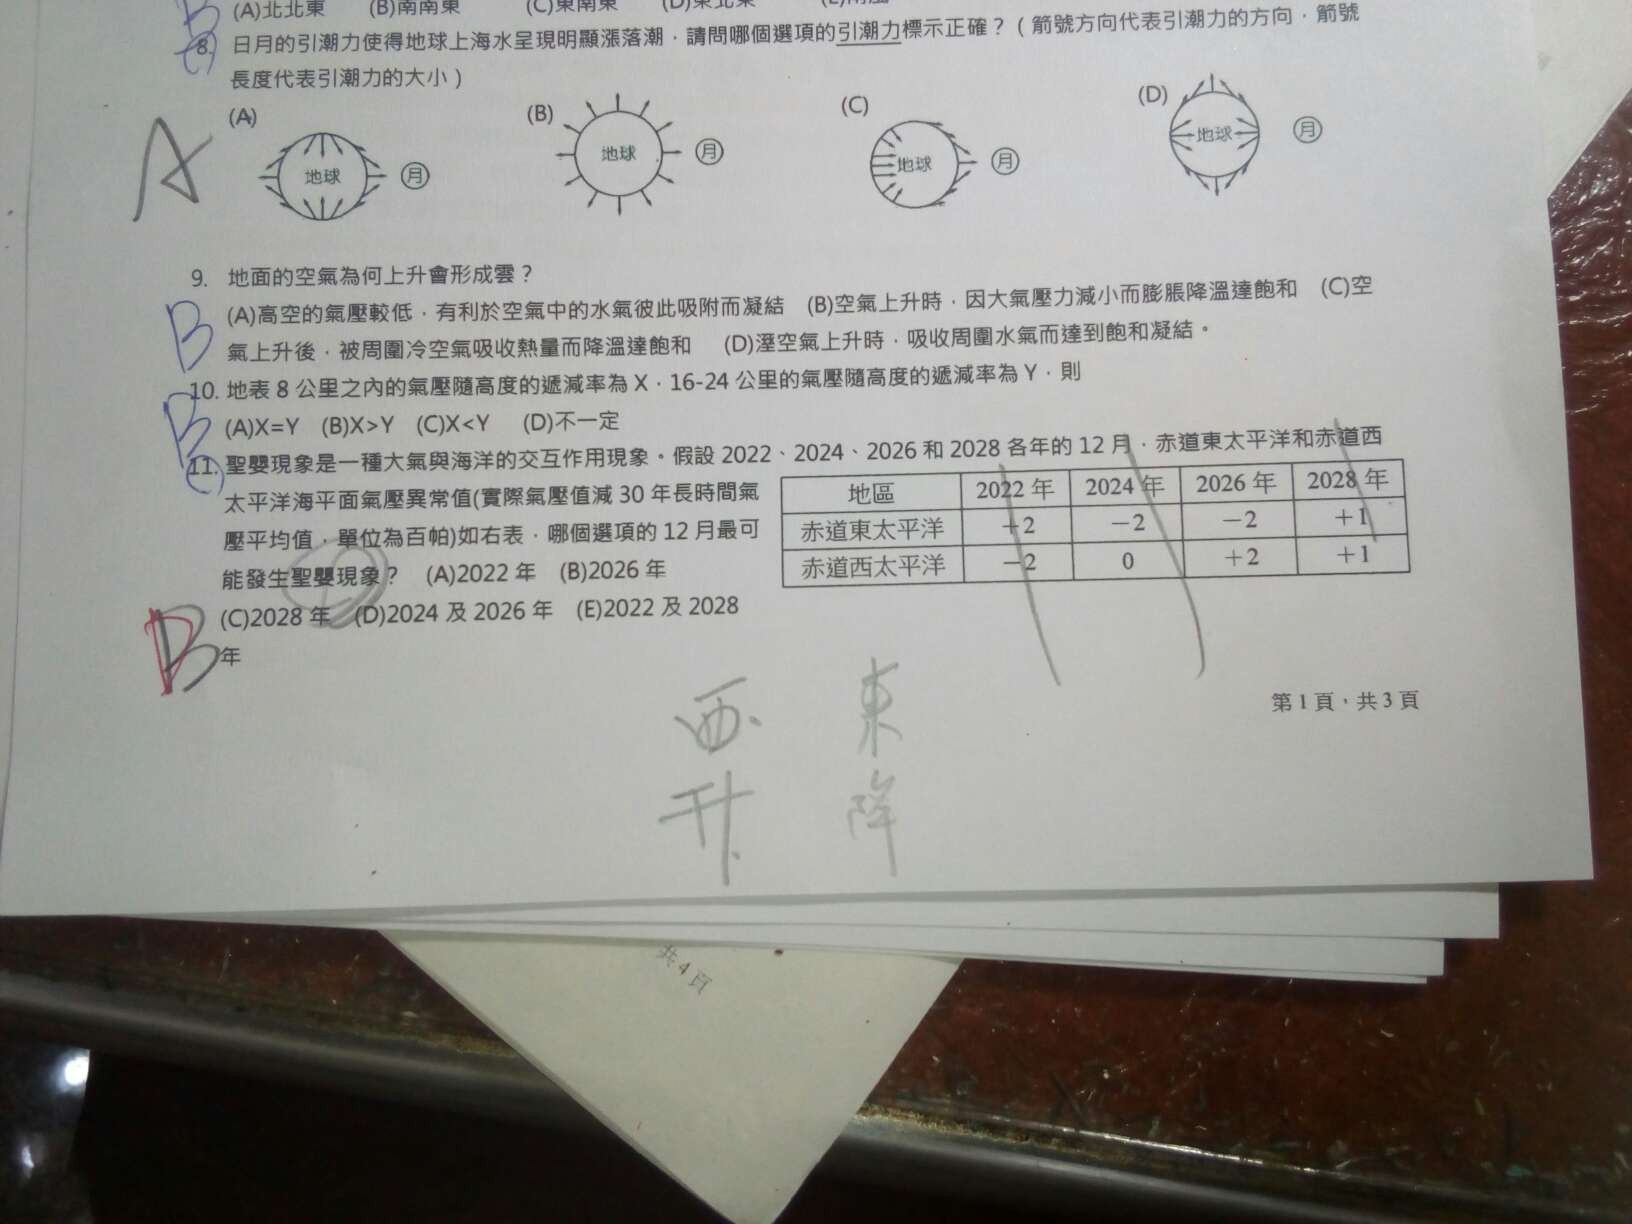 B (A)北北東 (B)南南東 (C)東南東 (D)東北東
8. 日月的引潮力使得地球上海水呈現明顯漲落潮,請問哪個選項的引潮力標示正確?(箭號方向代表引潮力的方向,箭號
長度代表引潮力的大小)
A (A) 地球 月 (B) 地球 月 (C) 地球 月 (D) 地球 月
9. 地面的空氣為何上升會形成雲?
B (A)高空的氣壓較低,有利於空氣中的水氣彼此吸附而凝結 (B)空氣上升時,因大氣壓力減小而膨脹降溫達飽和 (C)空
氣上升後,被周圍冷空氣吸收熱量而降溫達飽和 (D)溼空氣上升時,吸收周圍水氣而達到飽和凝結。
10. 地表 8 公里之內的氣壓隨高度的遞減率為 X,16-24 公里的氣壓隨高度的遞減率為 Y,則
B (A)X=Y (B)X>Y (C)X<Y (D)不一定
11. 聖嬰現象是一種大氣與海洋的交互作用現象。假設 2022、2024、2026 和 2028 各年的 12 月,赤道東太平洋和赤道西
太平洋海平面氣壓異常值(實際氣壓值減 30 年長時間氣
壓平均值,單位為百帕)如右表,哪個選項的 12 月最可
能發生聖嬰現象? (A)2022 年 (B)2026 年
(C)2028 年 (D)2024 及 2026 年 (E)2022 及 2028
B 年
地區 2022 年 2024 年 2026 年 2028 年
赤道東太平洋 +2 −2 −2 +1
赤道西太平洋 −2 0 +2 +1
第 1 頁,共 3 頁
西 東
升 降
共 4 頁